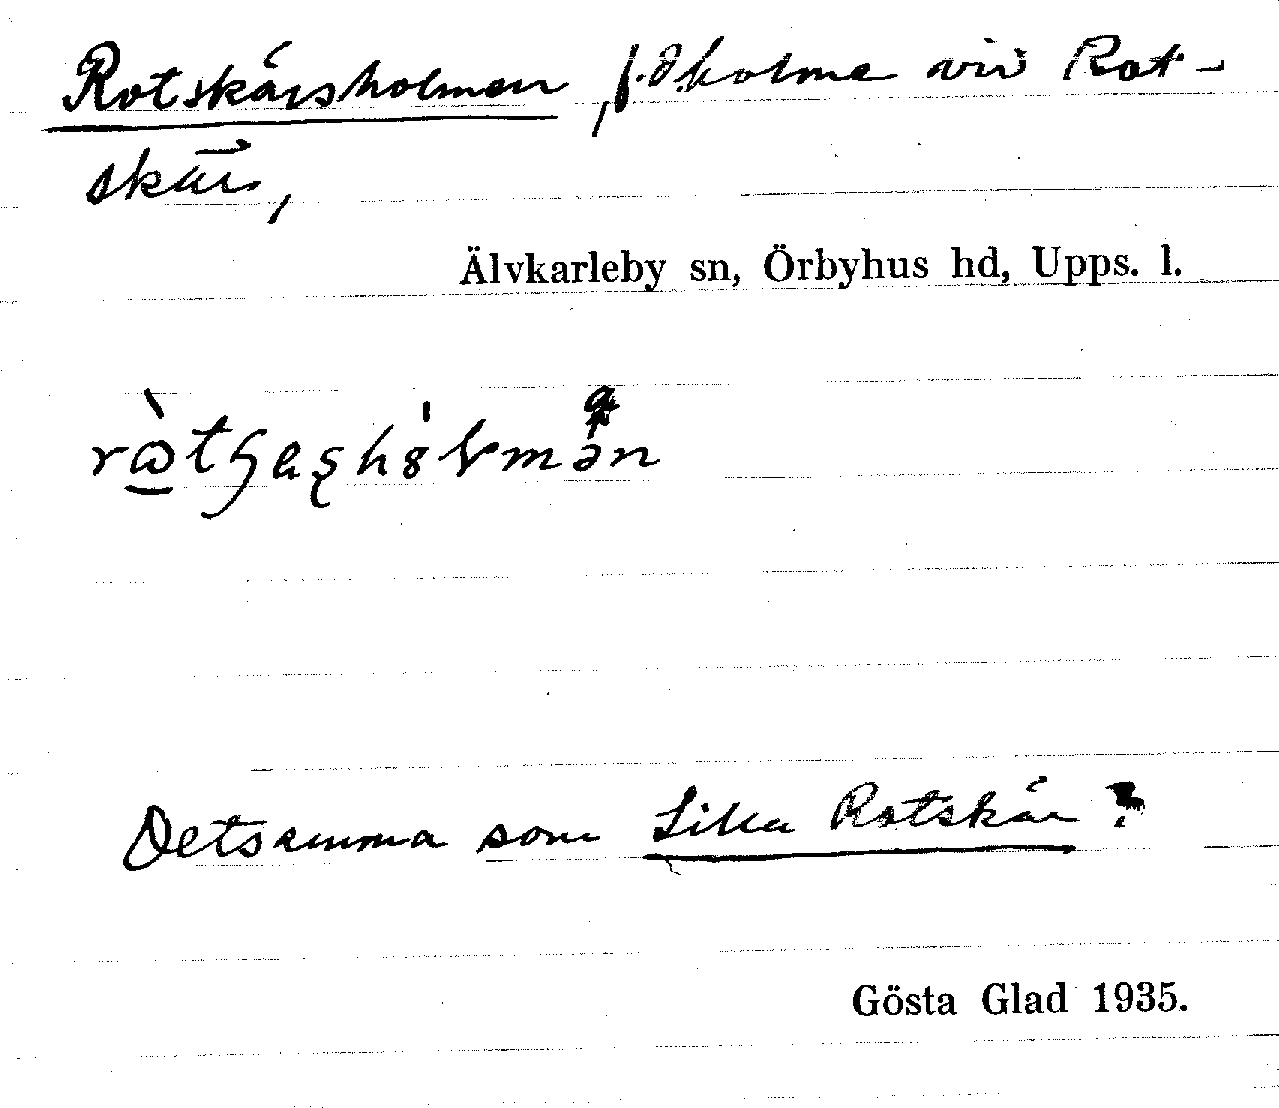 Rotskärsholmen, f.d. holme vid Rot-
skär,
Älvkarleby sn, Örbyhus hd, Upps. l.
Detsamma som Lilla Rotskär?
Gösta Glad 1935.